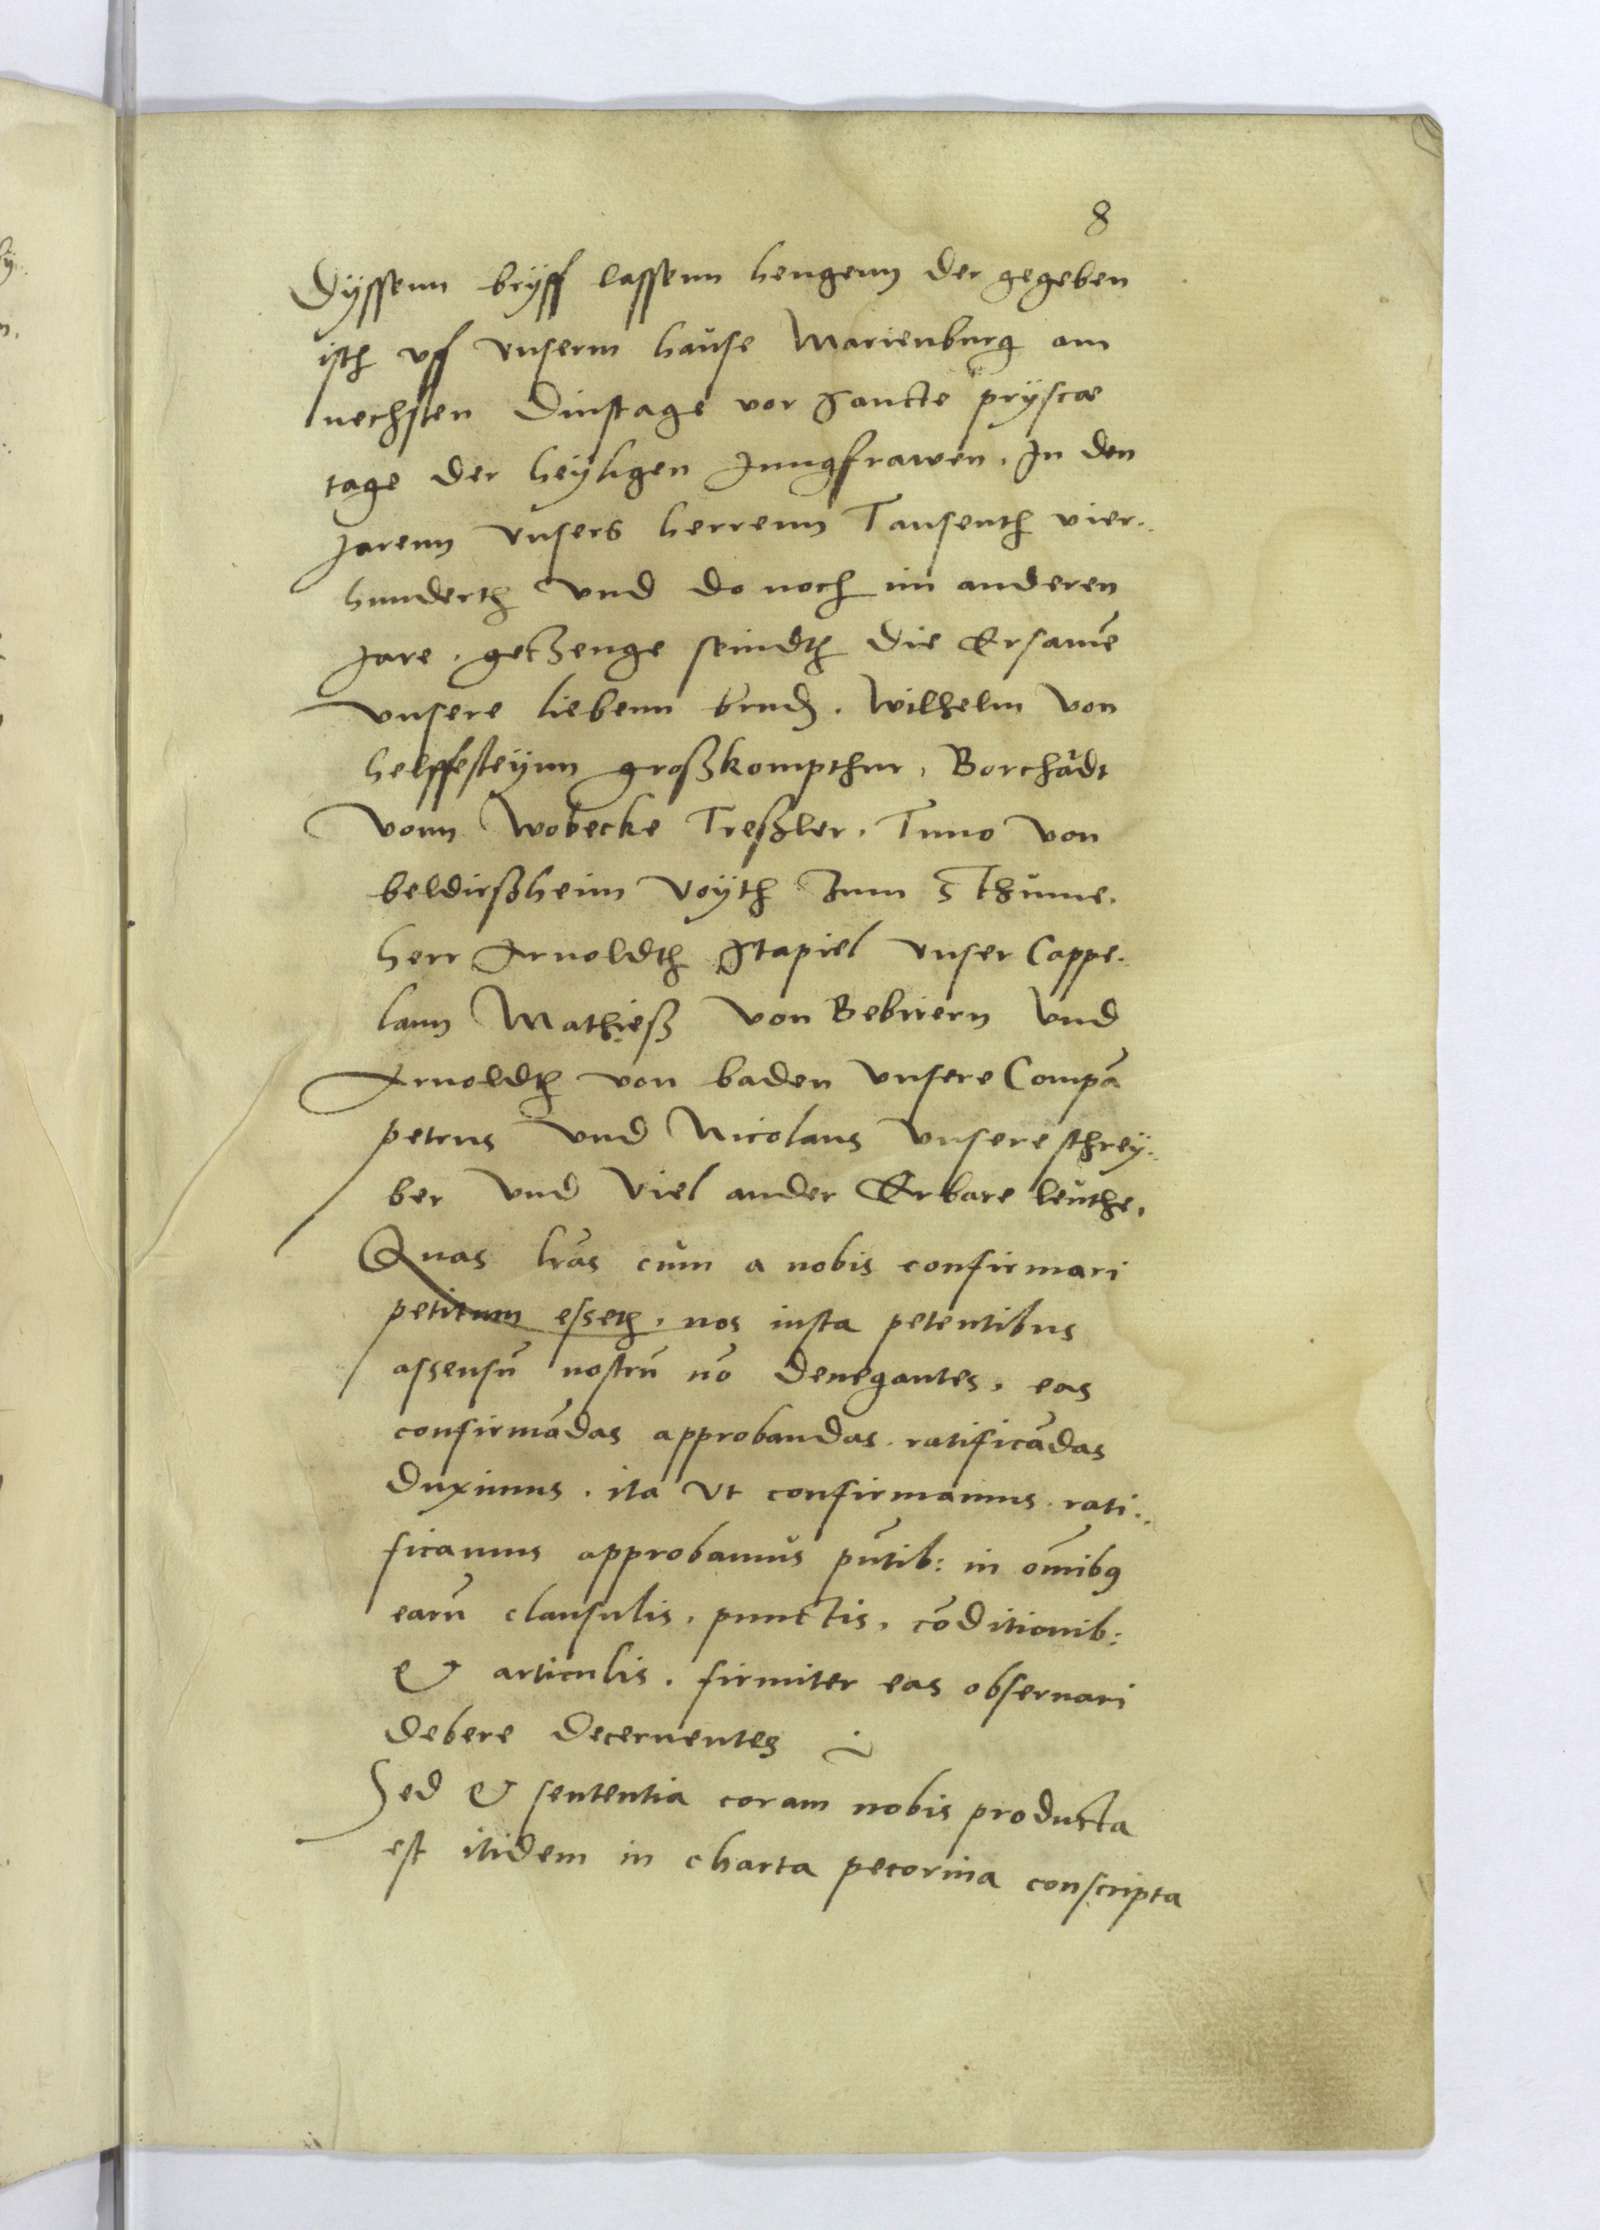 8
Dyssenn bryff lassenn hengenn der gegeben
isth vff vnserm hause Marienburg am
nechsten Dinstage vor Sancte pryscæ
tage der heyligen Jungfrawen. In den
Jarenn vnsers herrenn Tausenth vier..
hunderth vnd do noch im anderen
Jare. getzenge seindth die Ersamē
vnsere liebenn brud. Wilhelm von
helffesteynn großkompthur, Borchadt
vonn Wobecke Treßler. Tmo von
beldirßheim voyth zum Thume.
herr Arnoldth Stapiel vnser Cappe.
lann Mathieß von Bebirern vnd
Arnoldth von baden vnsere Compā
petrus vnd Nicolaus vnsere schrey..
ber vnd viel ander Erbare leuthe.
Quas lr̄as cum a nobis confirmari
petitum esseth. nos iusta petentibus
assensū nostrū nō denegantes, eas
confirmādas approbandas. ratificādas
duximus. ita vt confirmamus. rati..
ficamus approbamus pn̄tib: in om̄ib9
earū clausulis, punctis, cōditionib:
& articulis. firmiter eas obseruari
debere decernentes
Sed & sententia coram nobis producta
est itidem in charta pecorina conscripta